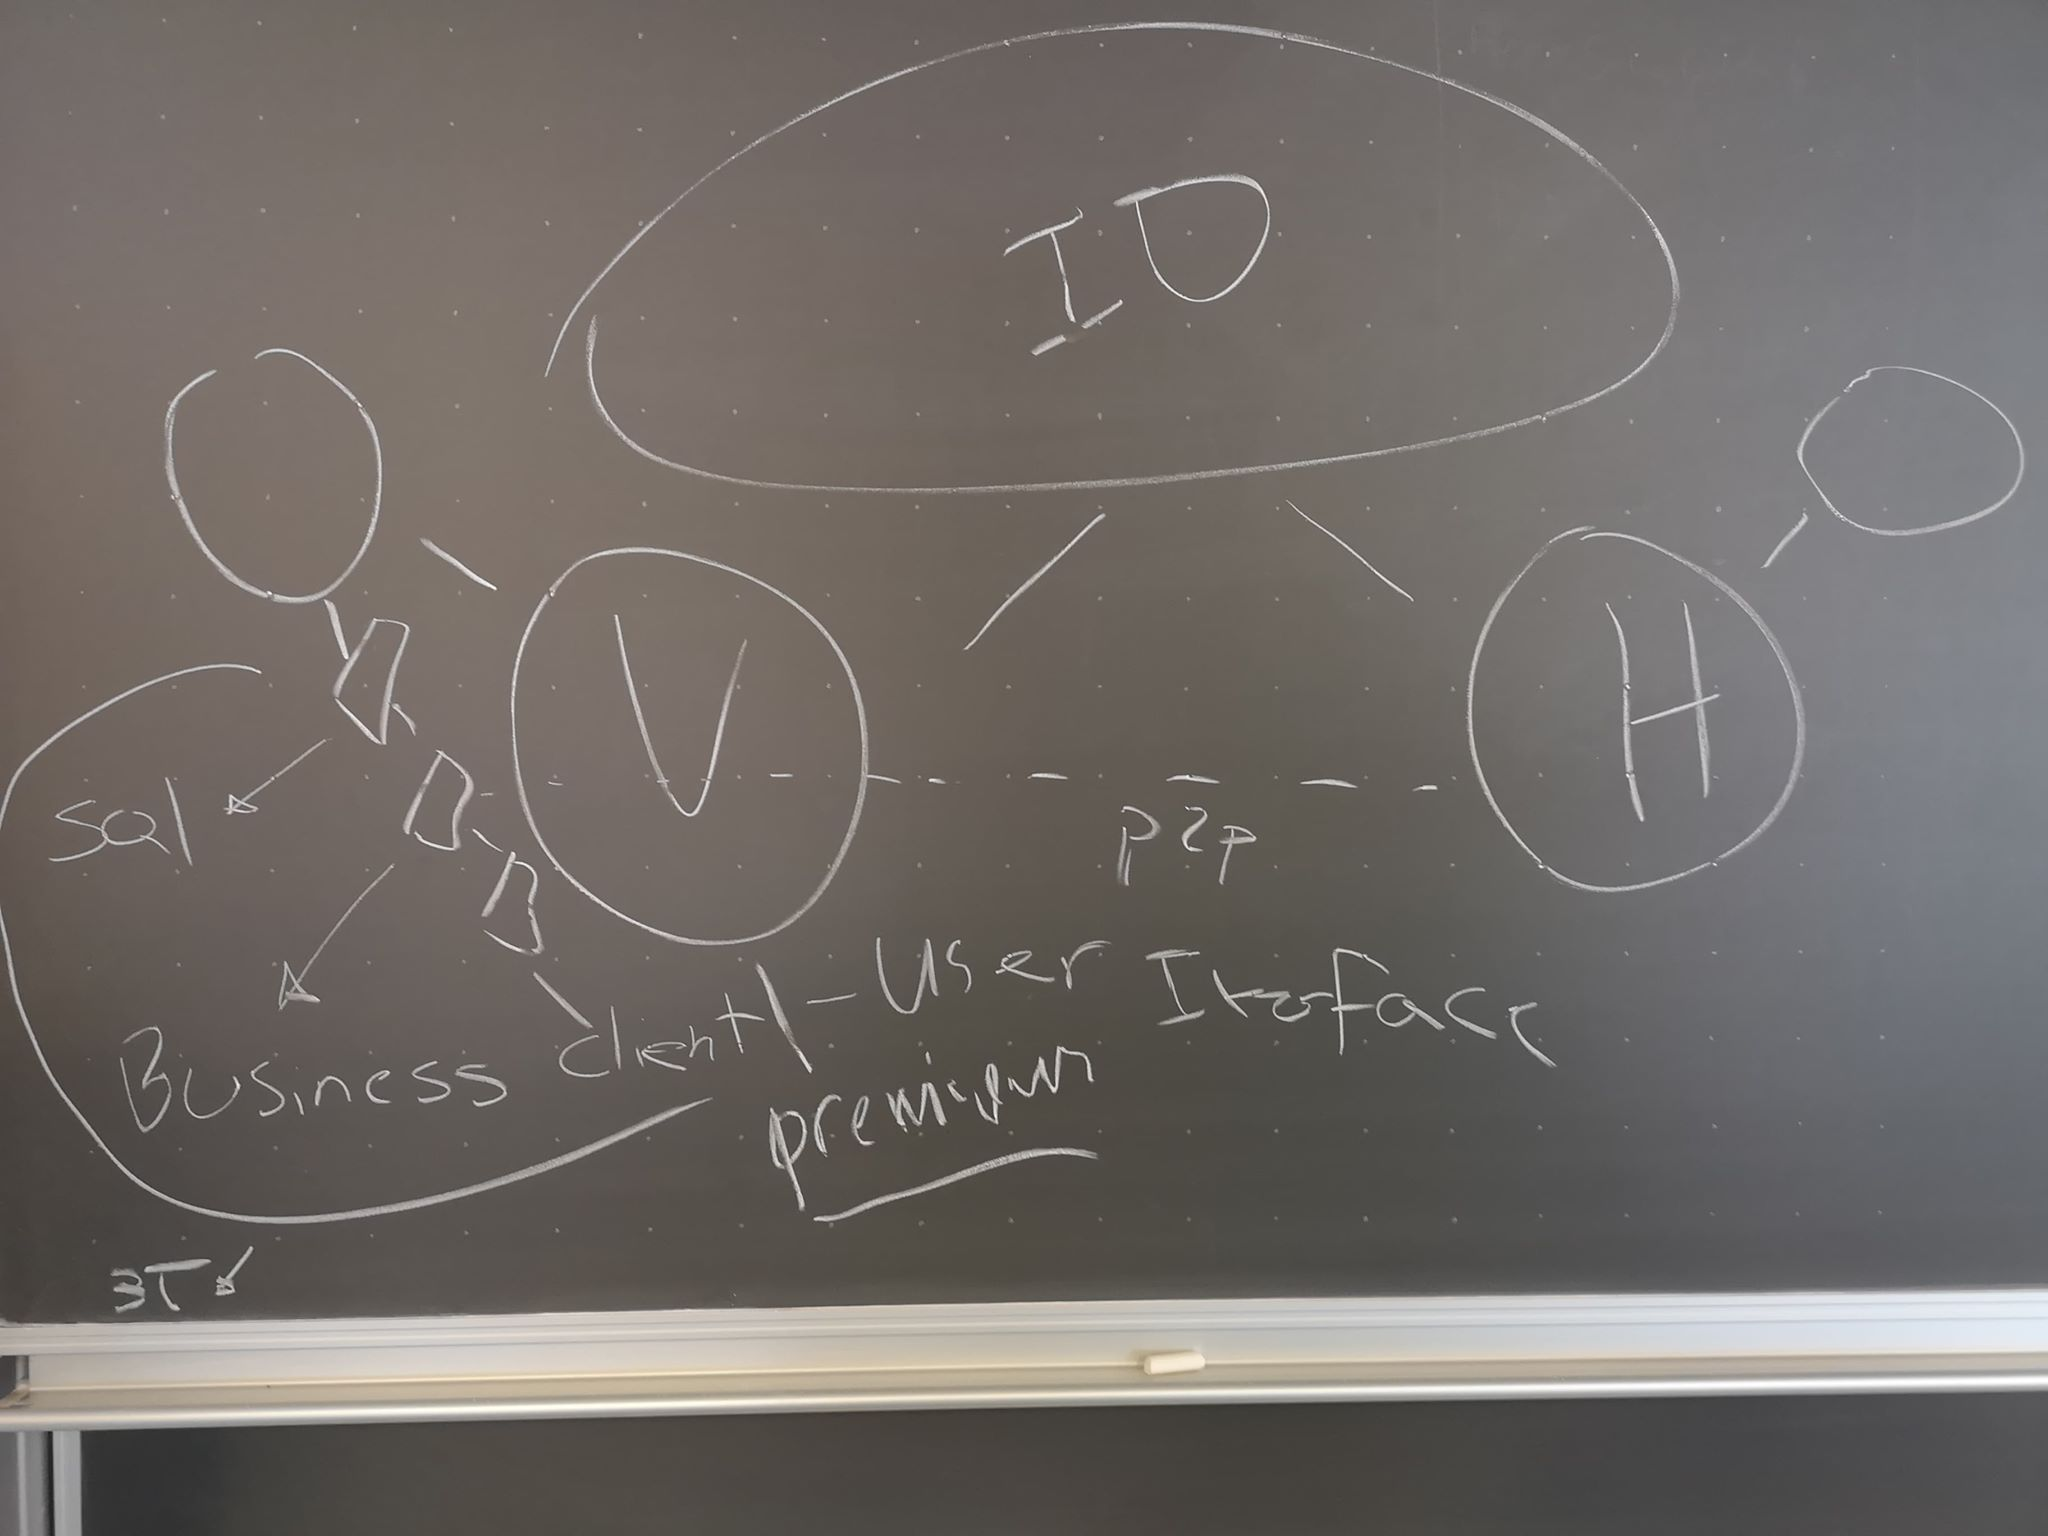 ID
V
H
sql
p2p
Business client - User Iterface
premium
3T